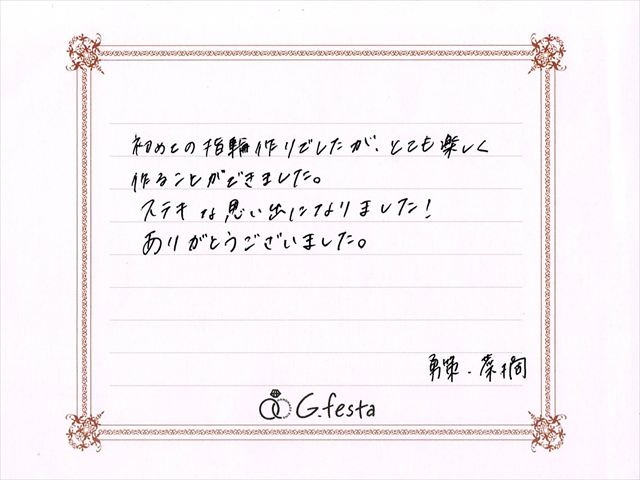 初めての指輪作りでしたが、とても楽しく
作ることができました。
ステキな思い出になりました！
ありがとうございました。
勇策・菜摘
G.festa